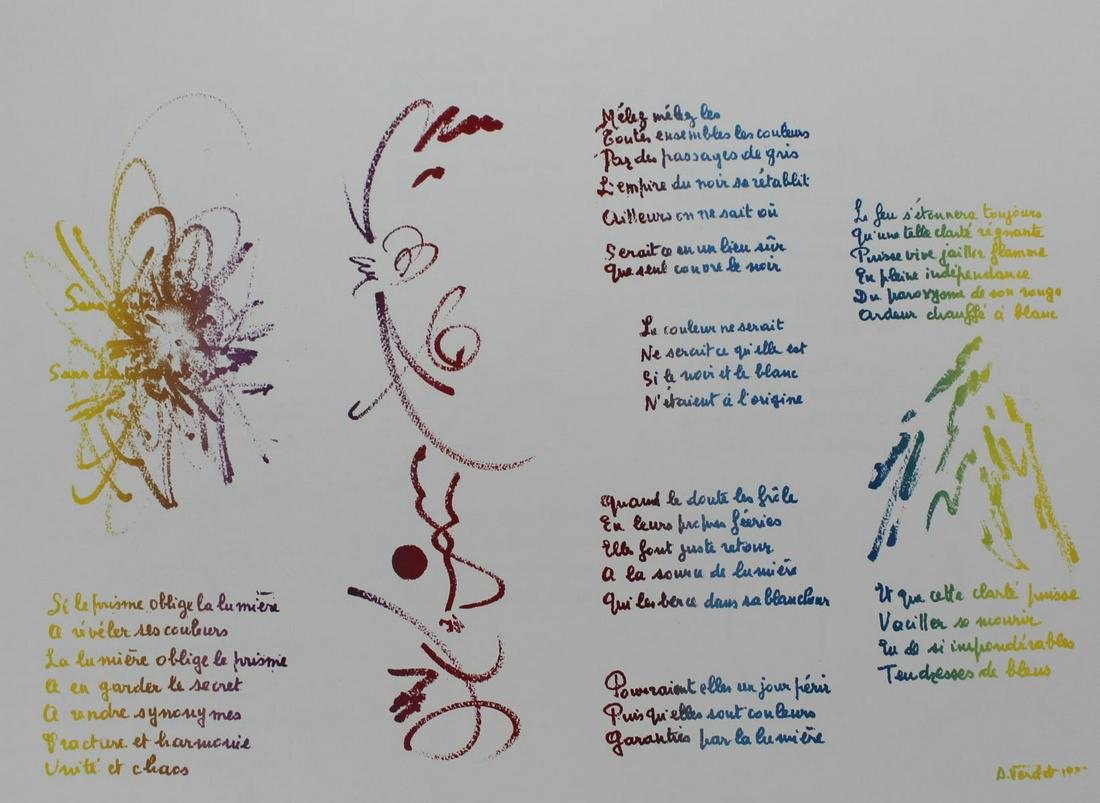 Sans doute
Sans doute
Si le prisme oblige la lumière
A révéler ses couleurs
La lumière oblige le prisme
A en garder le secret
A rendre synonymes
Fracture et harmonie
Unité et chaos
Mêlez mêlez les
Toutes ensembles les couleurs
Par des passages de gris
L'empire du noir se rétablit
Ailleurs on ne sait où
Serait ce en un lieu sûr
Que seul couvre le noir
La couleur ne serait
Ne serait ce qu'elle est
Si le noir et le blanc
N'étaient à l'origine
Quand le doute les frôle
En leurs propres féeries
Elles font juste retour
A la source de lumière
Qui les berce dans sa blancheur
Pourraient elles un jour périr
Puisqu'elles sont couleurs
Garanties par la lumière
Le feu s'étonnera toujours
Qu'une telle clarté régnante
Puisse vive jaillir flamme
En pleine indépendance
Du paroxysme de son rouge
Ardeur chauffé à blanc
Et que cette clarté puisse
Vaciller se mourir
En de si impondérables
Tendresses de bleus
A. Verdet